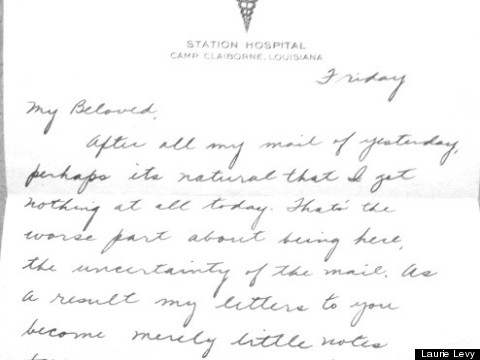 STATION HOSPITAL
CAMP CLAIBORNE, LOUISIANA
Friday
My Beloved,
After all my mail of yesterday,
perhaps its natural that I get
nothing at all today. Thats the
worse part about being here,
the uncertainty of the mail. As
a result my letters to you
become merely little notes
Laurie Levy